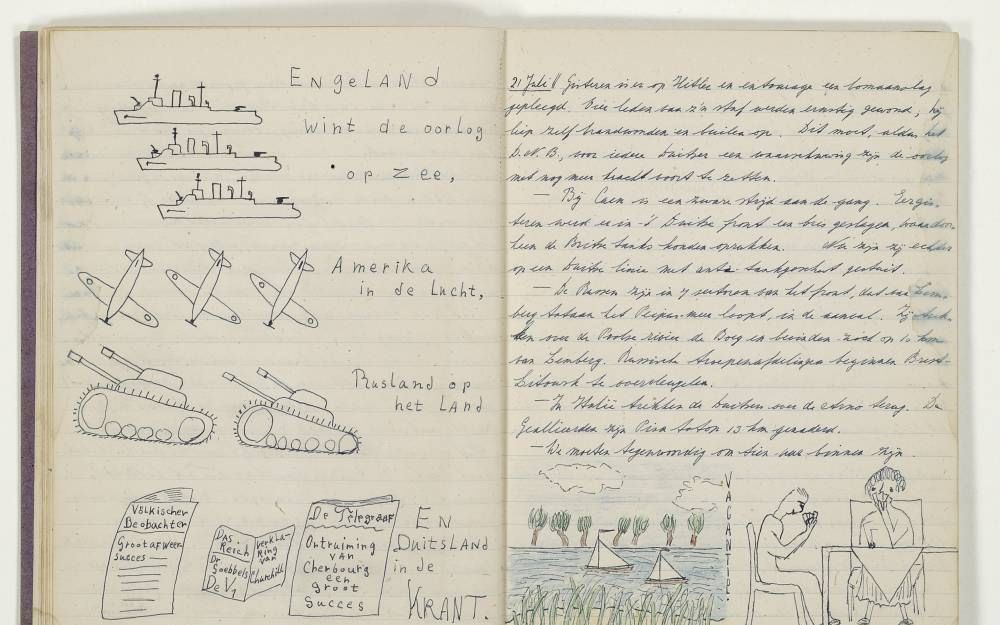 Engeland
wint de oorlog
op zee,
Amerika
in de Lucht,
Rusland op
het Land
Völkischer
Beobachter
Groot afweer
succes
Das
Reich
Dr
Goebbels
De V1
Verkla-
ring
van
Churchill
De Telegraaf
Ontruiming
van
Cherbourg
een
groot
succes
En
Duitsland
in de
Krant.
21 Juli // Gisteren is er op Hitler en entourage een bomaanslag
gepleegd. Vier leden van z'n staf werden ernstig gewond, hij
liep zelf brandwonden en builen op. Dit moet, aldus het
D.N.B., voor iedere Duitser een waarschuwing zijn de oorlog
met nog meer kracht voort te zetten.
— Bij Caen is een zware strijd aan de gang. Eergis-
teren werd er in 't Duitse front een bres geslagen, waardoor-
heen de Britse tanks konden oprukken. Nu zijn zij echter
op een Duitse linie met anti tankgeschut gestuit.
— De Russen zijn in 7 sectoren van het front, dat van Lem-
berg tot aan het Peipus-meer loopt, in de aanval. Zij
over de Poolse rivier de Boeg en bevinden zich op 10 km
van Lemberg. Russische troepenafdelingen beginnen Brest
Litowsk te overvleugelen.
— In Italië trekken de Duitsers over de Arno terug. De
Geallieerden zijn Pisa tot op 13 km genaderd.
— We moeten tegenwoordig om tien uur binnen zijn.
VACANTIE